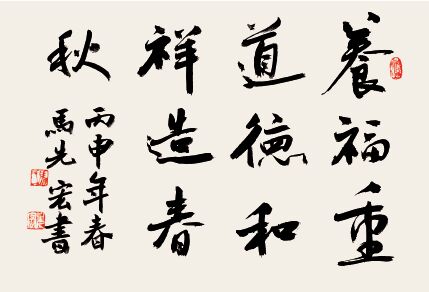 養福重
道德和
祥造春
秋
丙申年春
馬先宏書